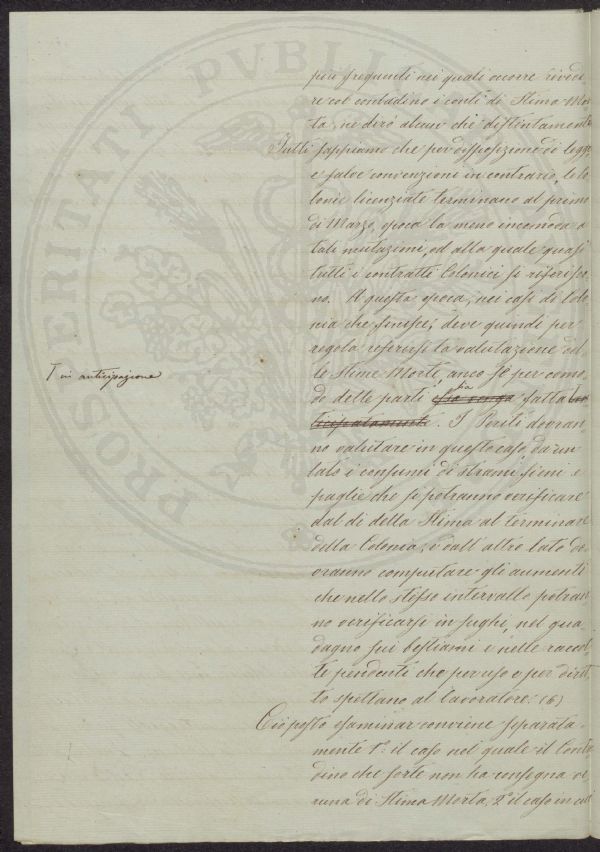 PROSPERITATI PVBLICAE
più frequenti nei quali occorre rivede-
re col contadino i conti di Stima Mor-
ta, ne dirò alcun chè distintamente
Tutti sappiamo che per disposizione di legge
e salve convenzioni in contrario, le Co-
lonie licenziate terminano al primo
di Marzo, epoca la meno incomoda a
tali mutazioni, ed alla quale quasi
tutti i contratti Colonici si riferisco-
no. A questa epoca, nei casi di Colo-
nia che finisce, deve quindi per
regola referirsi la valutazione del-
le Stime Morte, anco se per como-
do delle parti essa venga sia fatta an-
ticipatamente. I Periti dovran-
no valutare in questo caso da un
lato i consumi di strami fieni e
paglie che si potranno verificare
dal dì della Stima al terminare
della Colonia, e dall'altro lato do-
vranno computare gli aumenti
che nello stesso intervallo potran-
no verificarsi in sughi, nel gua-
dagno sui bestiami e nelle raccol-
te pendenti che per uso e per dirit-
to spettano al lavoratore. (6)
Ciò posto esaminar conviene separata-
mente 1º: il caso nel quale il Conta-
dino che sorte non ha consegna ve-
runa di Stima Morta, 2º il caso in cui
T in anticipazione